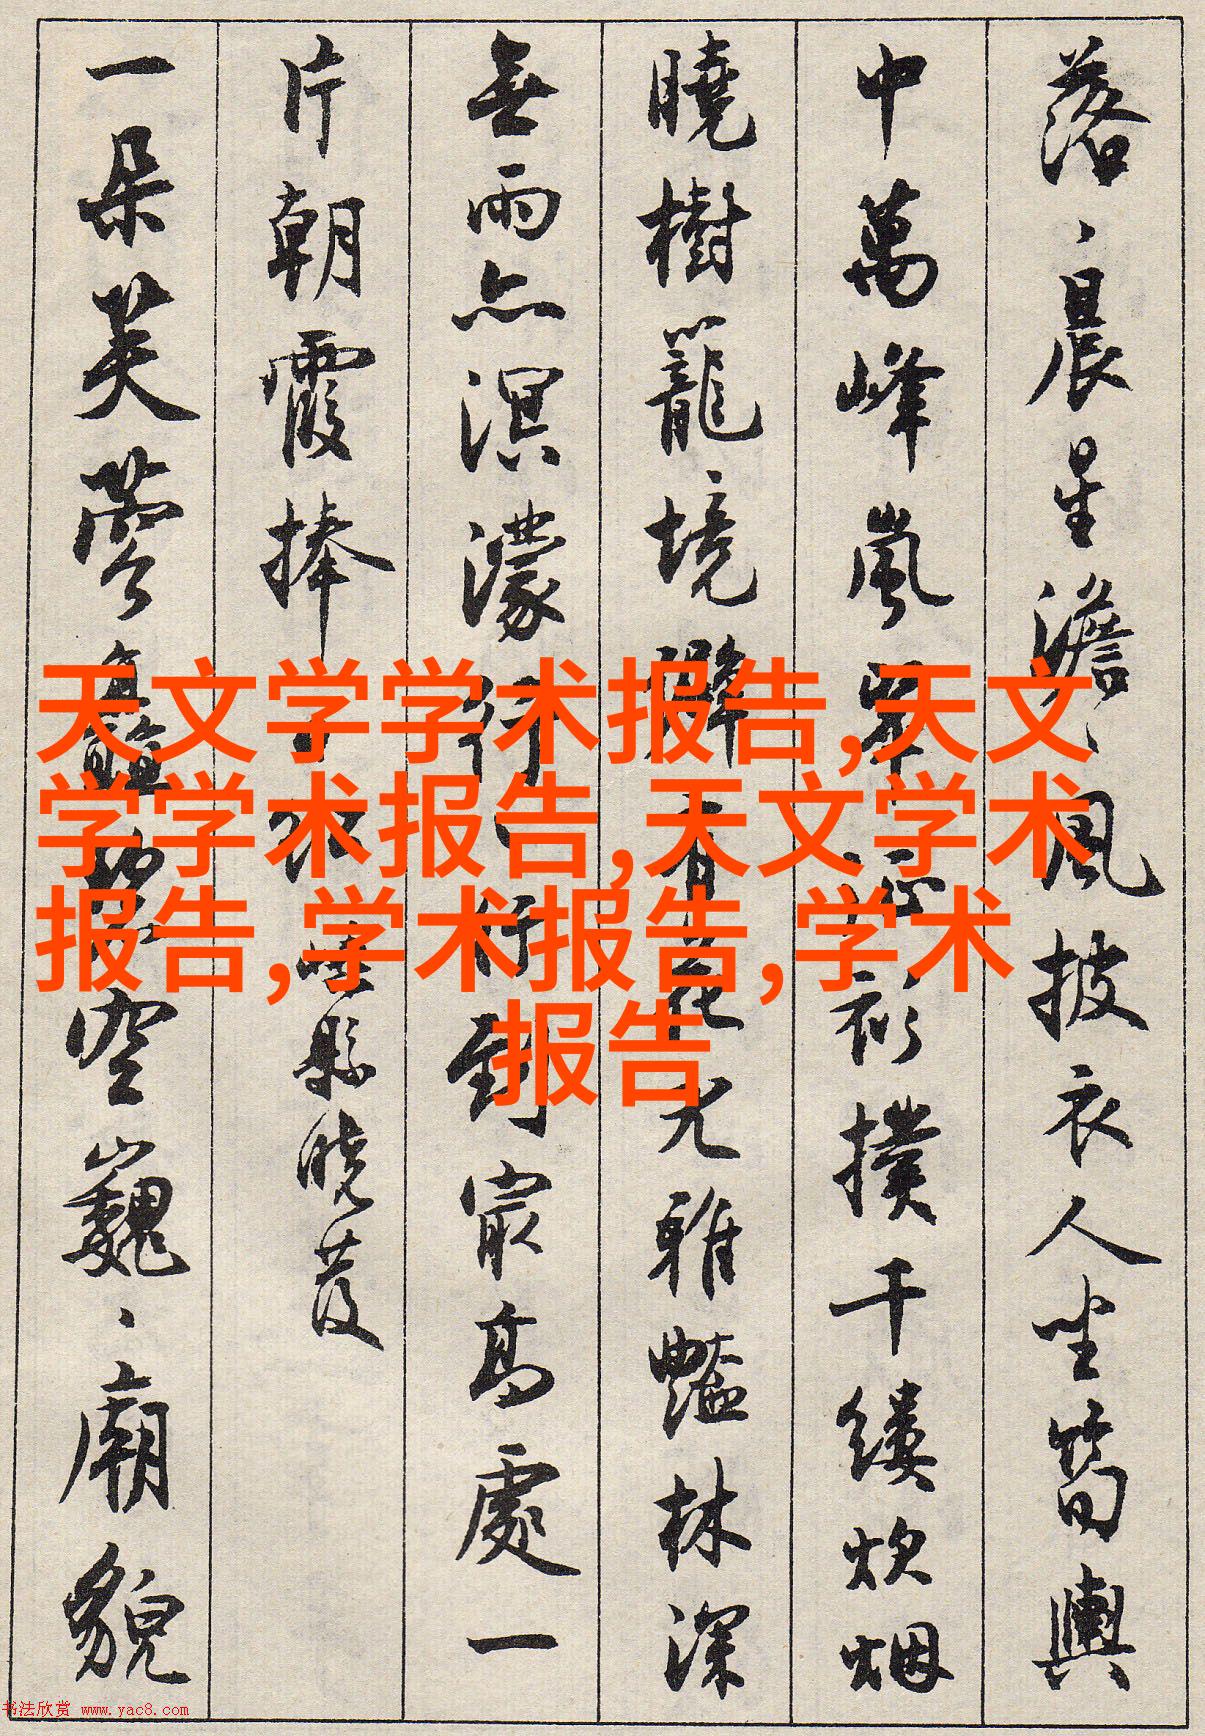 落、晨星澹、風披衣人坐筍輿
中萬峰嵐翠 衫撲千縷炊烟
曉樹籠境僻 尤雅豔林深
無雨亦溟濛行行行到最高處一
片朝霞捧 縣曉發
一朵芙蓉 空巍、廟貌
天文学学术报告,天文
学学术报告,天文学术
报告,学术报告,学术
报告
书法欣赏 www.yac8.com